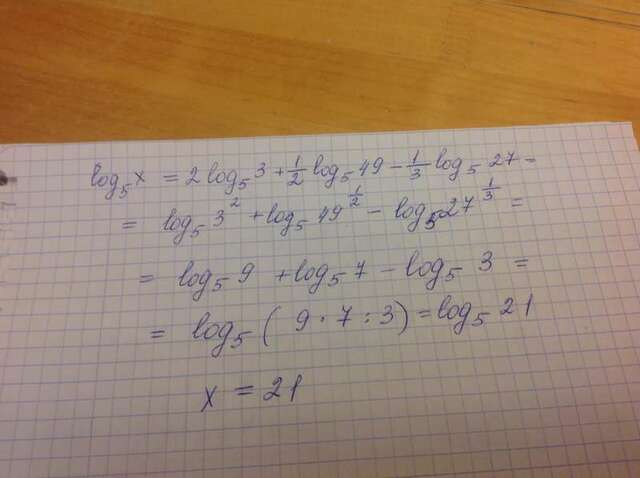 log₅x = 2log₅3 + 1/2 log₅49 - 1/3 log₅27 =
= log₅3² + log₅49^(1/2) - log₅27^(1/3) =
= log₅9 + log₅7 - log₅3 =
= log₅(9 · 7 : 3) = log₅21
x = 21